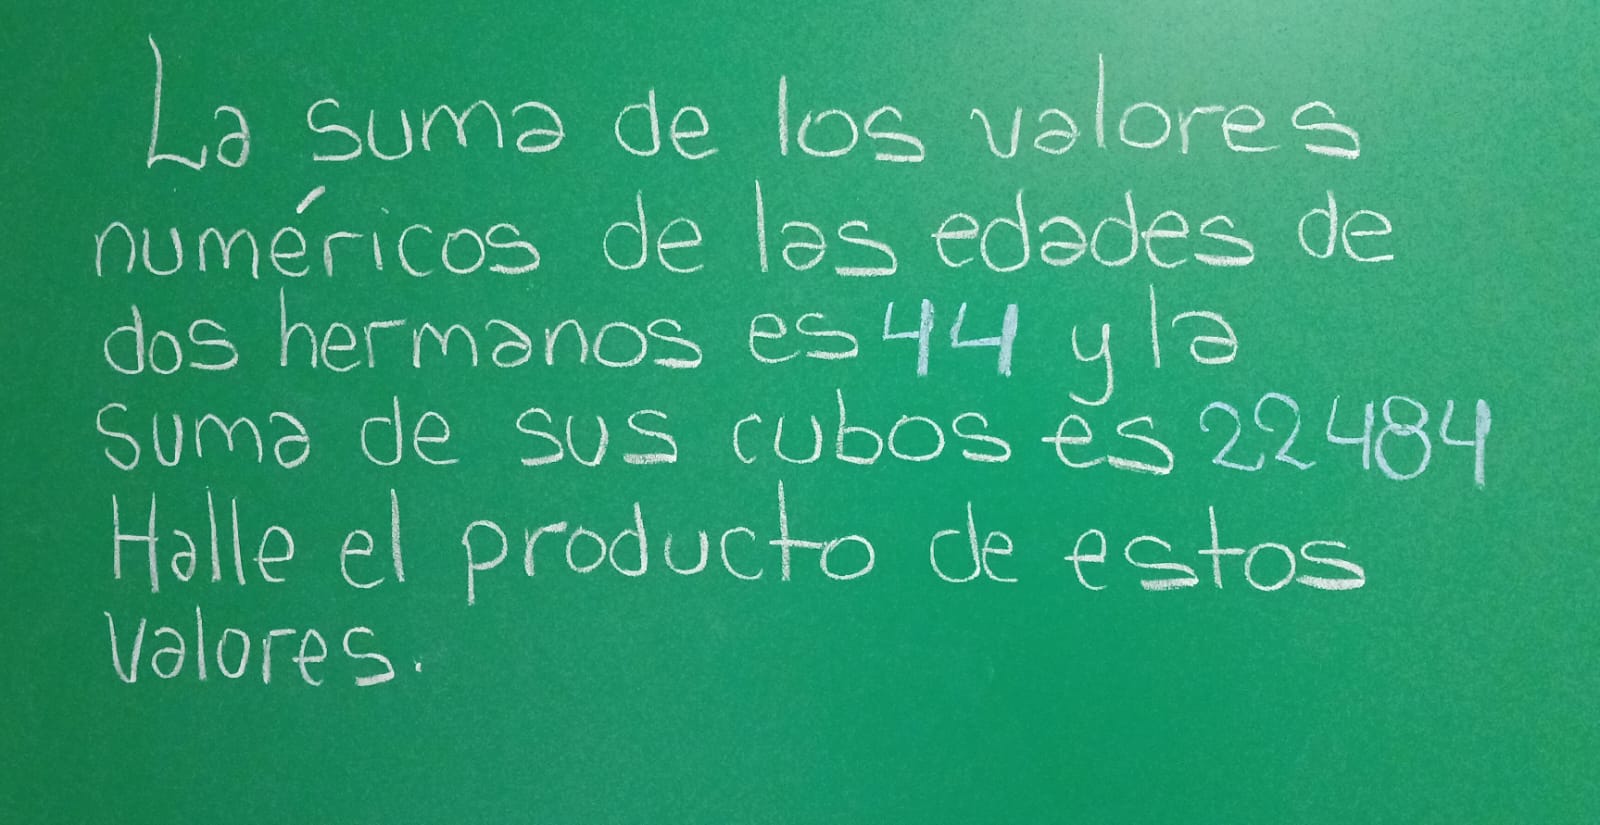 La suma de los valores
numéricos de las edades de
dos hermanos es 44 y la
suma de sus cubos es 22484
Halle el producto de estos
valores.